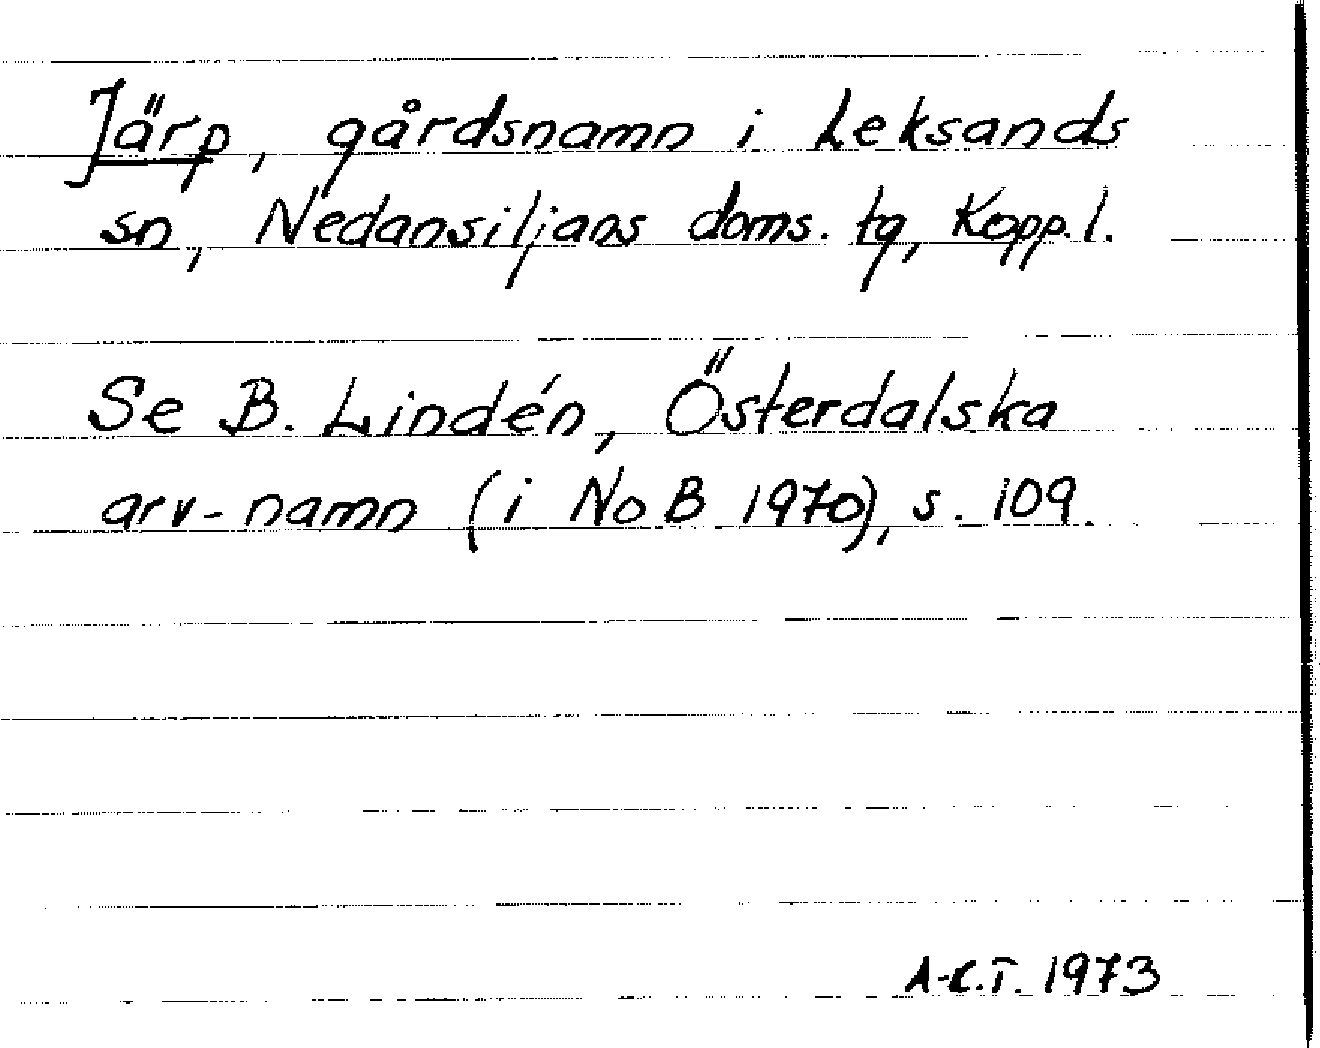 Järp, gårdsnamn i Leksands
sn, Nedansiljans doms. tg, Kopp. l.
Se B. Lindén, Österdalska
arv-namn (i NoB 1970), s. 109.
A-C.T. 1973